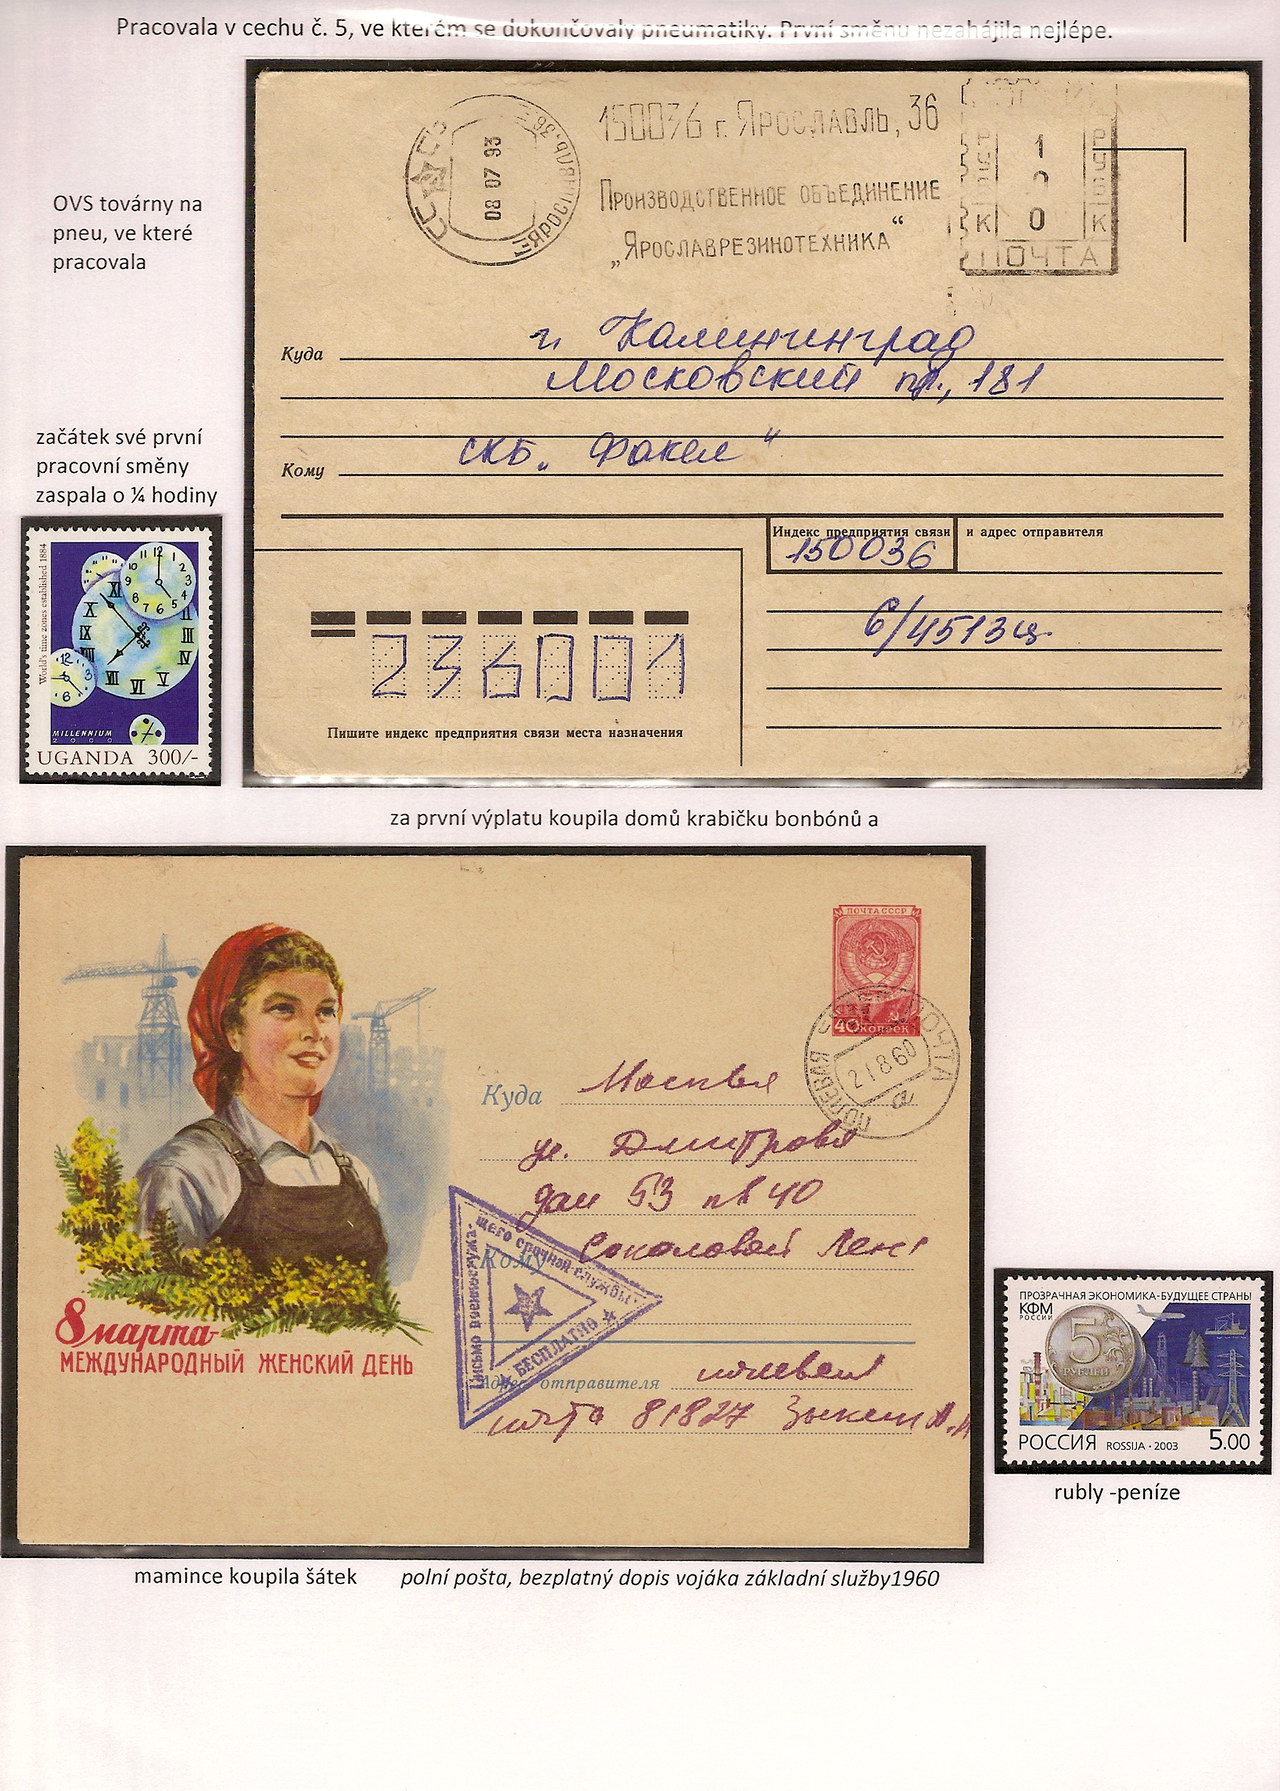 Pracovala v cechu č. 5, ve kterém se dokončovaly pneumatiky. První směnu nezahájila nejlépe.
OVS továrny na
pneu, ve které
pracovala
08 07 93
150036 г. Ярославль, 36
Производственное объединение
„Ярославрезинотехника“
ПОЧТА
Куда г. Калининград
Московский пр., 181
Кому СКБ „Факел“
Индекс предприятия связи и адрес отправителя
150036
6/4513ц
236001
Пишите индекс предприятия связи места назначения
začátek své první
pracovní směny
zaspala o ¼ hodiny
World's time zones established 1884
MILLENNIUM
2000
UGANDA 300/-
za první výplatu koupila domů krabičku bonbónů a
ПОЧТА СССР
40 копеек
ПОЛЕВАЯ ПОЧТА
21860
а
Куда Москва
ул. Дмитрова
дом 53 кв 40
Кому Соколовой Лене
Письмо военнослужащего срочной службы
БЕСПЛАТНО
Адрес отправителя полевая
почта 81827
8 марта-
МЕЖДУНАРОДНЫЙ ЖЕНСКИЙ ДЕНЬ
ПРОЗРАЧНАЯ ЭКОНОМИКА-БУДУЩЕЕ СТРАНЫ
КФМ
РОССИИ
5
РУБЛЕЙ
РОССИЯ ROSSIJA · 2003 5.00
rubly -peníze
mamince koupila šátek polní pošta, bezplatný dopis vojáka základní služby1960